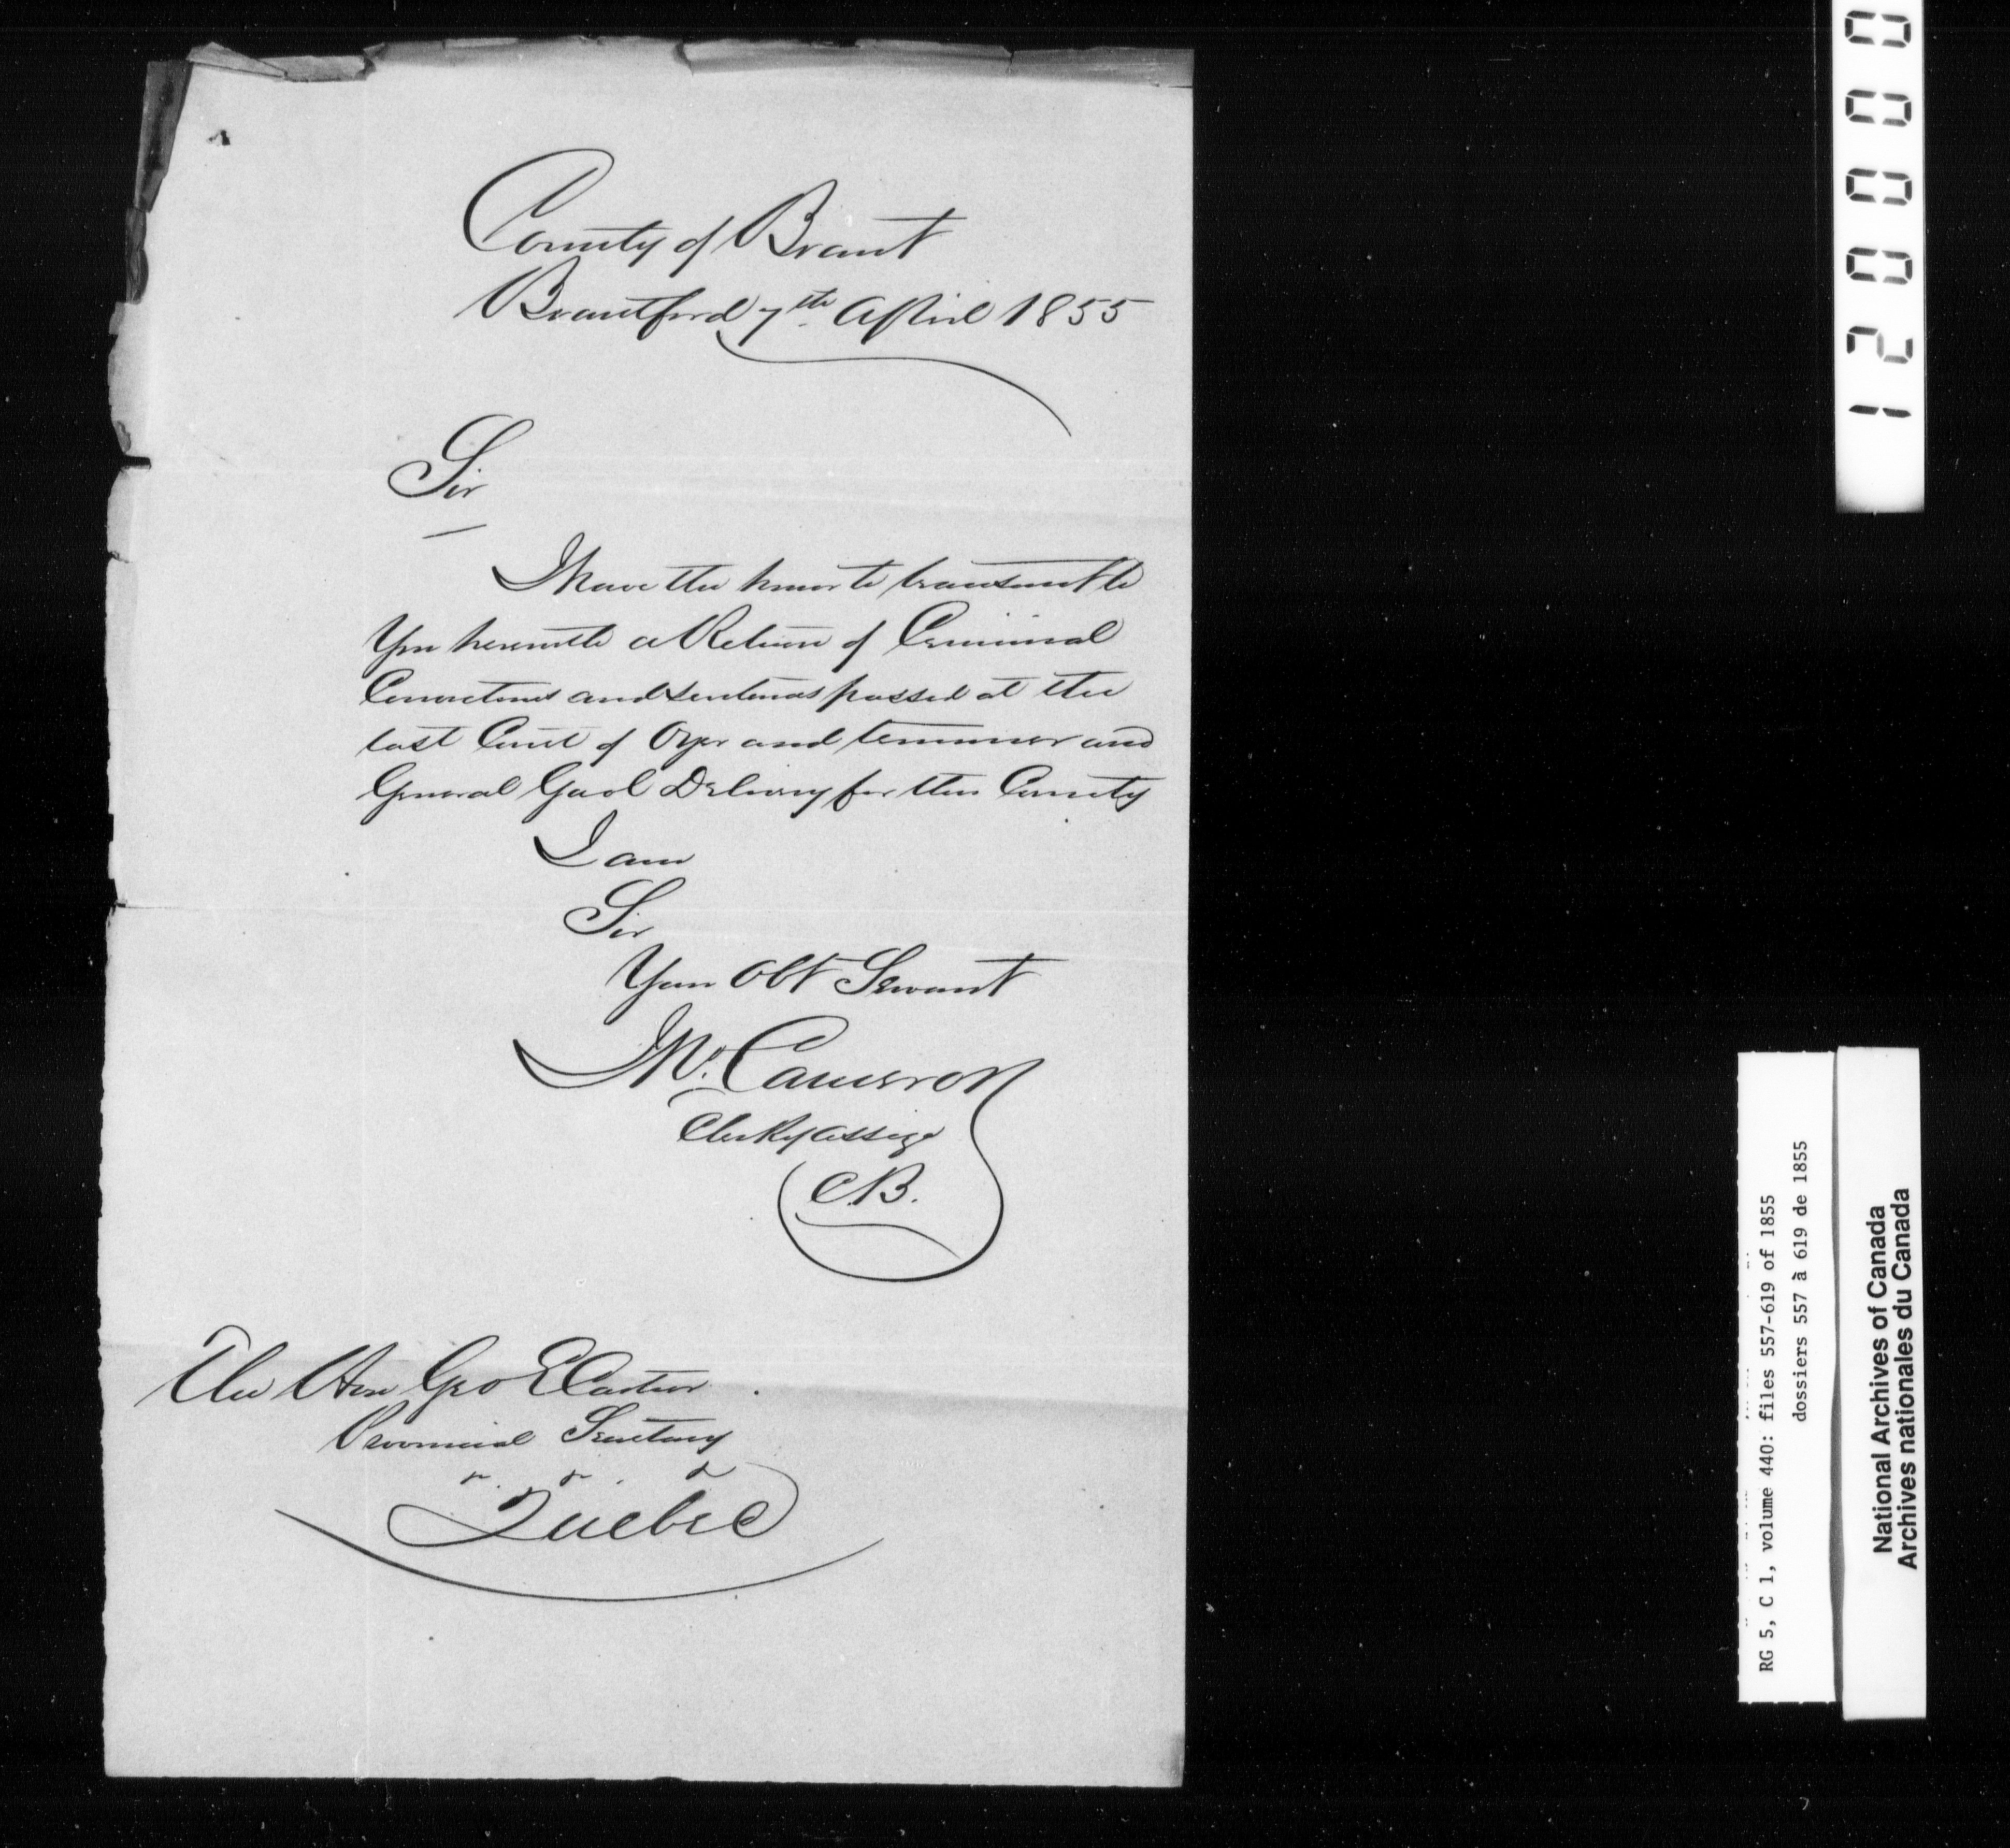 County of Brant
Brantford 7th. April 1855
Sir
I have the honor to transmit to
You herewith a Return of Criminal
Convictions and sentences passed at the
last Court of Oyer and terminer and
General Gaol Delivery for this County
I am
Sir
Your Obt Servant
Cameron
Clerk of Assize
C.B.
The Hon Geo E Cartier
Provincial Secretary
Quebec
120000
RG 5, C 1, volume 440: files 557-619 of 1855
dossiers 557 à 619 de 1855
National Archives of Canada
Archives nationales du Canada